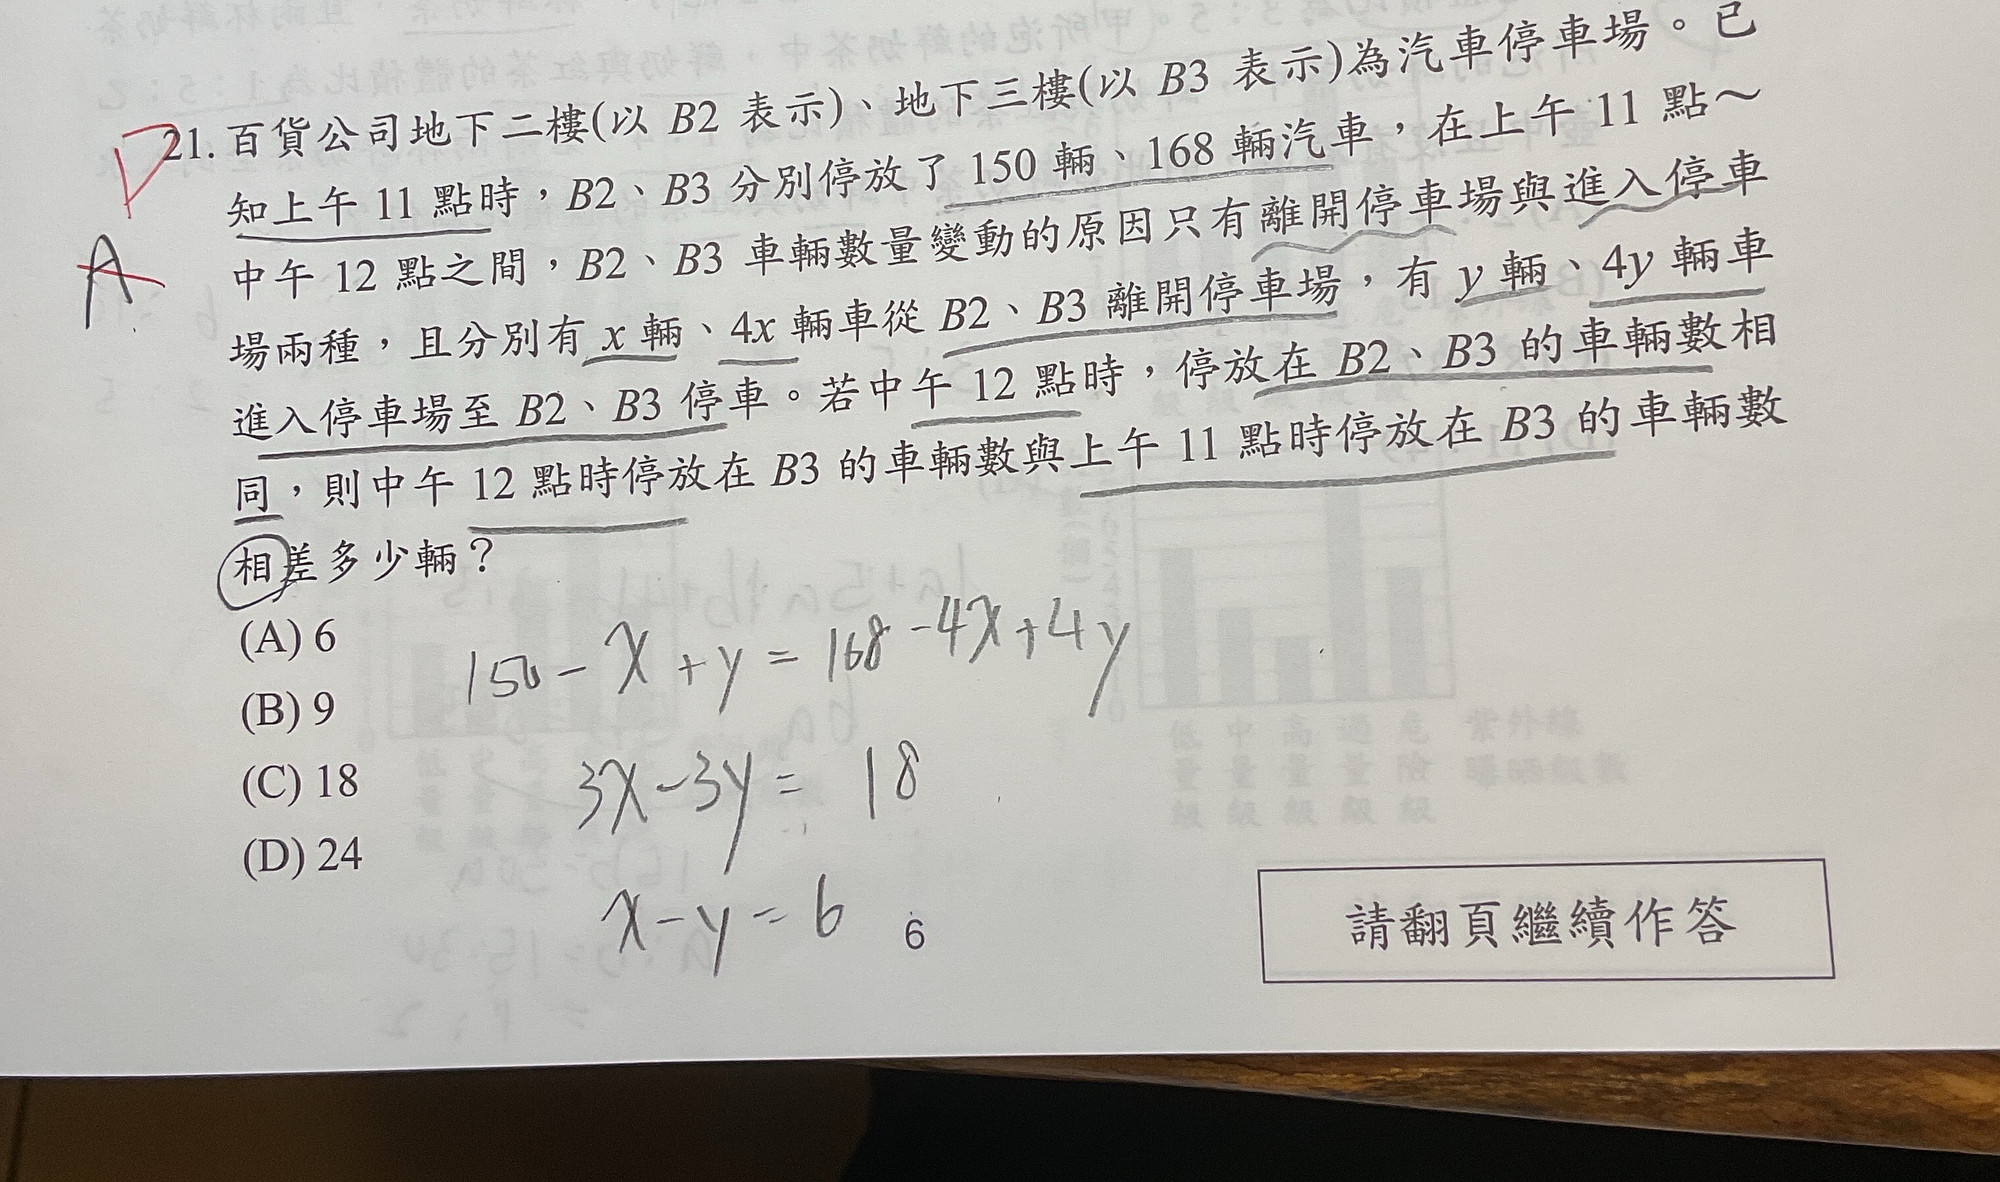 D
21. 百貨公司地下二樓(以 B2 表示)、地下三樓(以 B3 表示)為汽車停車場。已
知上午 11 點時，B2、B3 分別停放了 150 輛、168 輛汽車，在上午 11 點～
中午 12 點之間，B2、B3 車輛數量變動的原因只有離開停車場與進入停車
A
場兩種，且分別有 x 輛、4x 輛車從 B2、B3 離開停車場，有 y 輛、4y 輛車
進入停車場至 B2、B3 停車。若中午 12 點時，停放在 B2、B3 的車輛數相
同，則中午 12 點時停放在 B3 的車輛數與上午 11 點時停放在 B3 的車輛數
相差多少輛？
(A) 6
150 - x + y = 168 - 4x + 4y
(B) 9
(C) 18
3x - 3y = 18
(D) 24
x - y = 6
6
請翻頁繼續作答